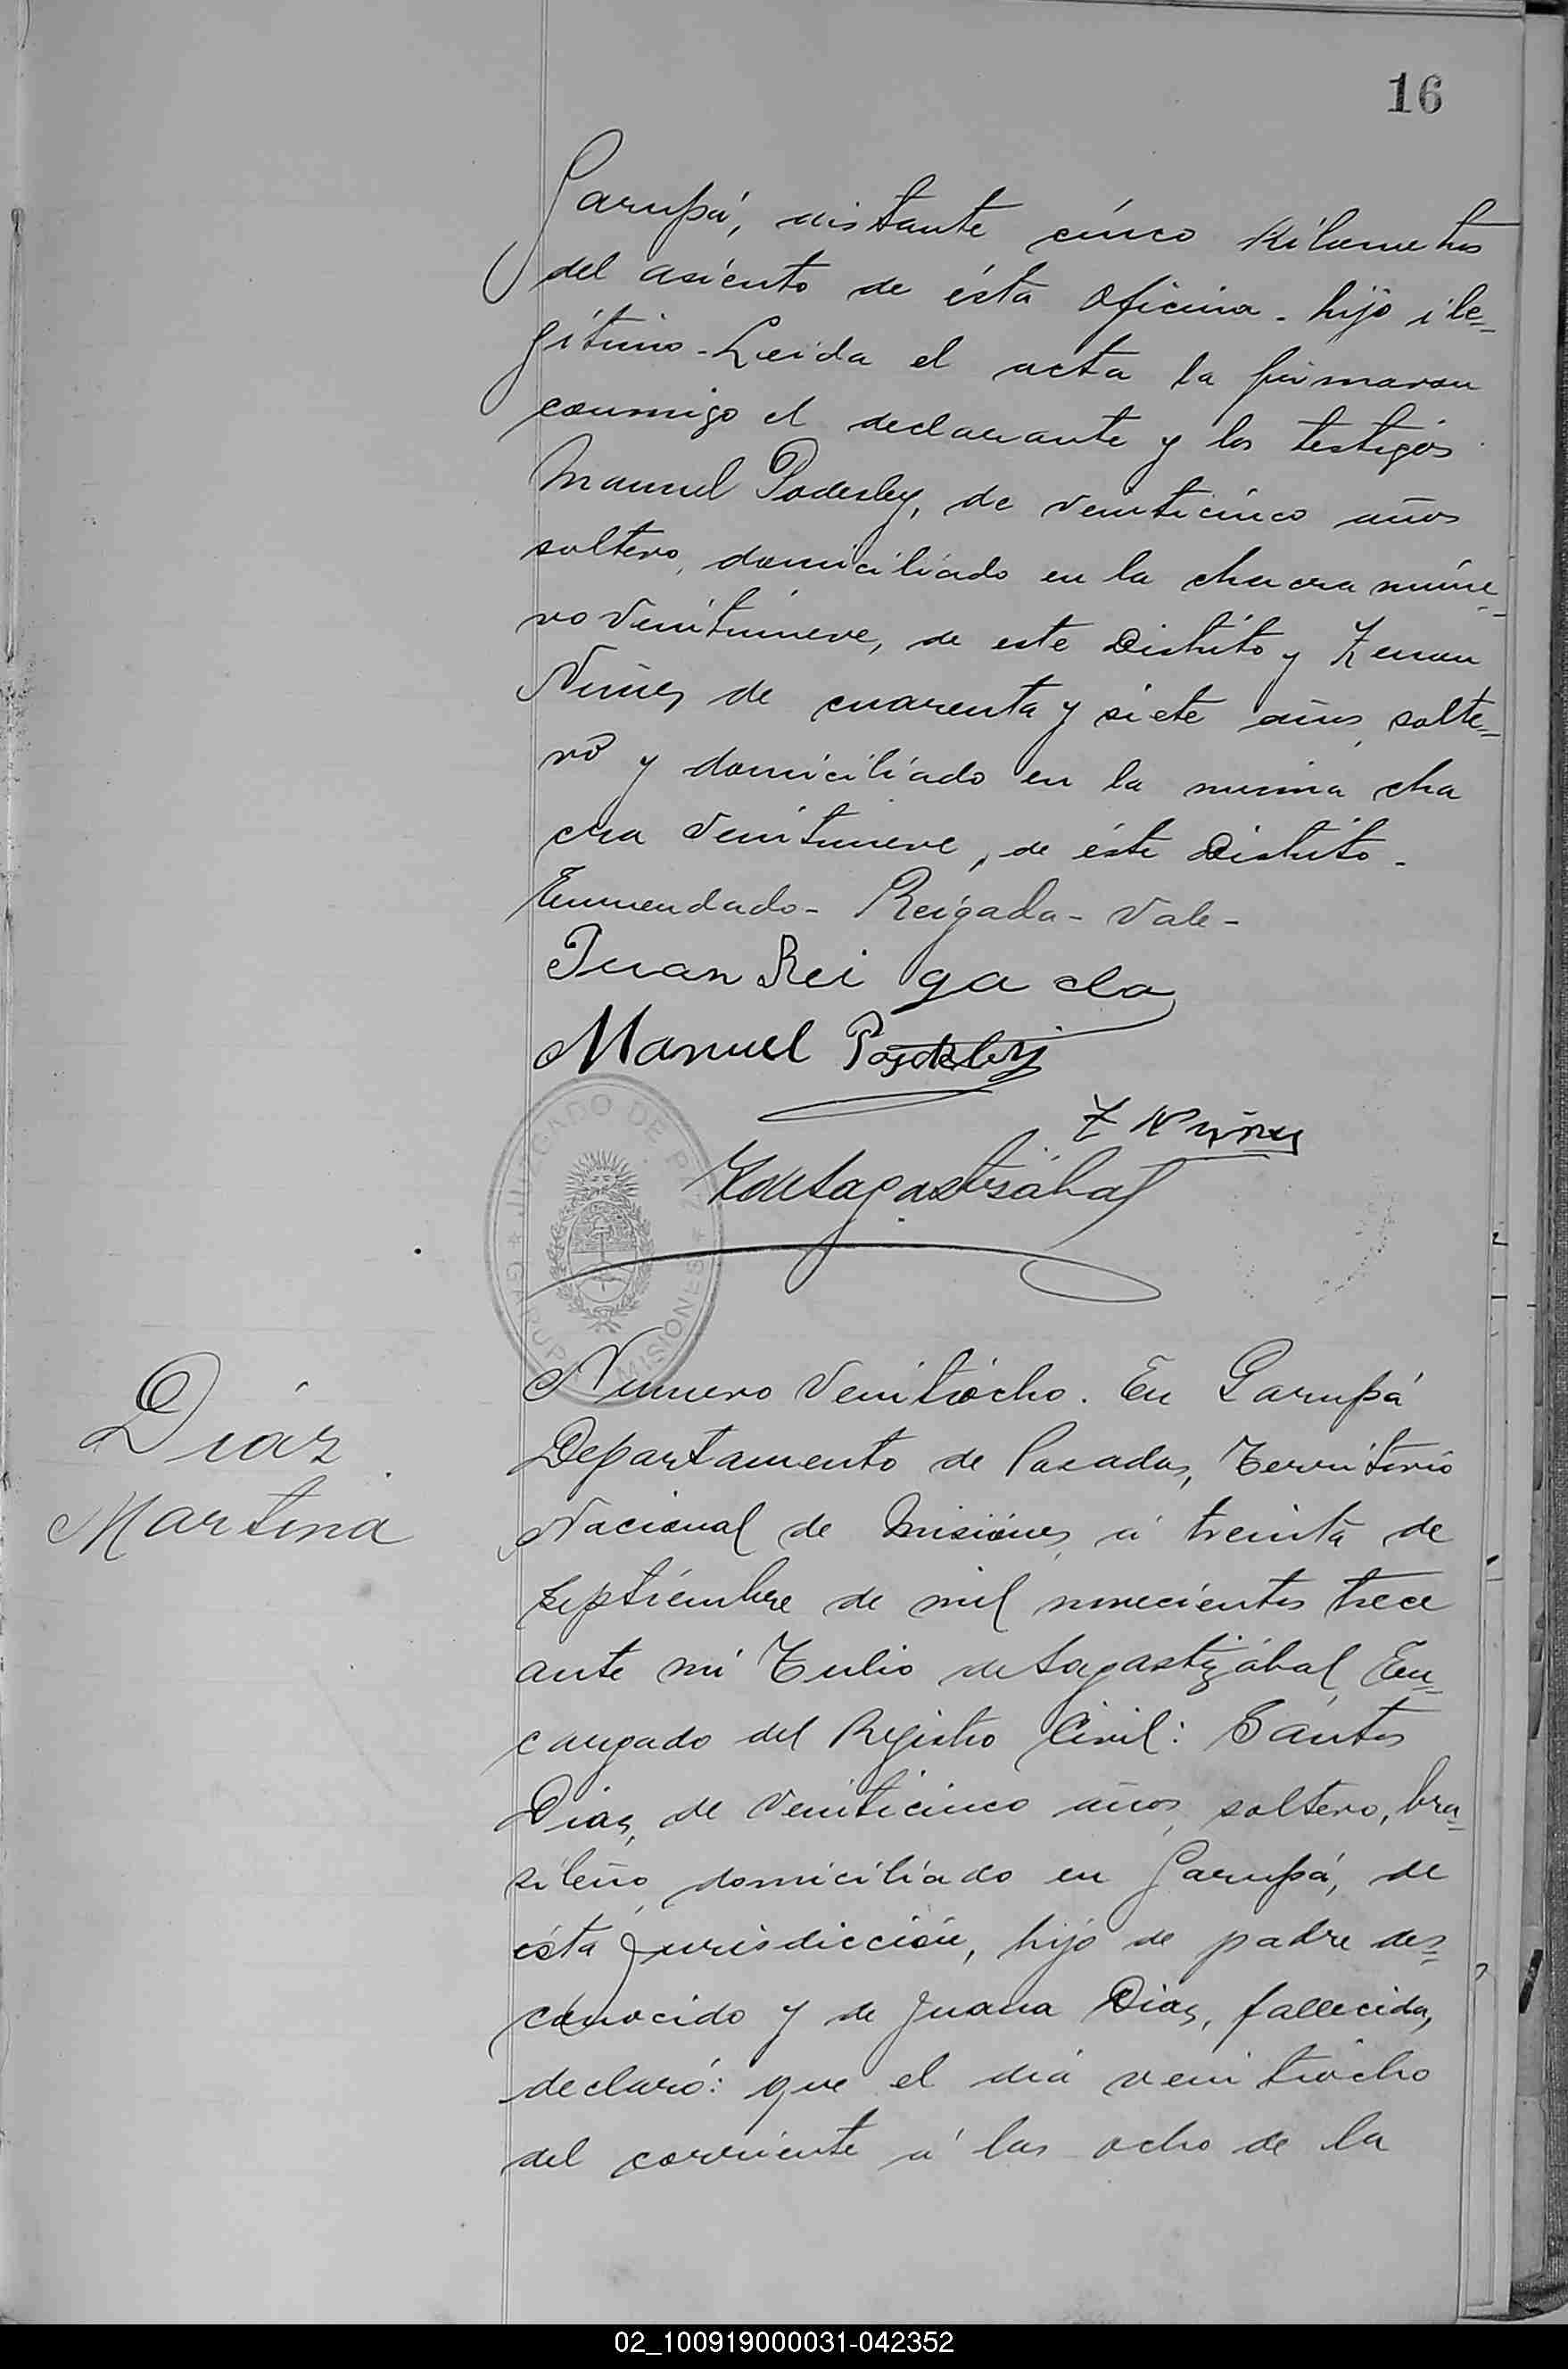 16
Garupá, distante cinco Kilometros
del asiento de ésta Oficina - hijo ile-
gítimo - Leida el acta la firmaron
conmigo el declarante y los testigos
Manuel Podesley, de veinticinco años
soltero, domiciliado en la chacra núme-
ro Veintinueve, de este Distrito y Zenon
Nuñez de cuarenta y siete años, solte-
ro y domiciliado en la misma cha
cra Veintinueve, de éste Distrito -
Enmendado - Reigada - Vale -
Juan Reigada
Manuel
Z Nuñez
JUZGADO DE PAZ * GARUPÁ MISIONES *
Díaz
Martina
Numero Veintiocho. En Garupá
Departamento de Posadas, Territorio
Nacional de Misiones, á treinta de
Septiembre de mil novecientos trece
ante mi Tulio de Sagastizábal, En-
cargado del Registro Civil: Santos
Diaz, de Veinticinco años, soltero, bra-
sileño, domiciliado en Garupá, de
ésta Jurisdicción, hijo de padre des-
conocido y de Juana Diaz, fallecida,
declaró: que el día veintiocho
del corriente á las ocho de la
02_100919000031-042352